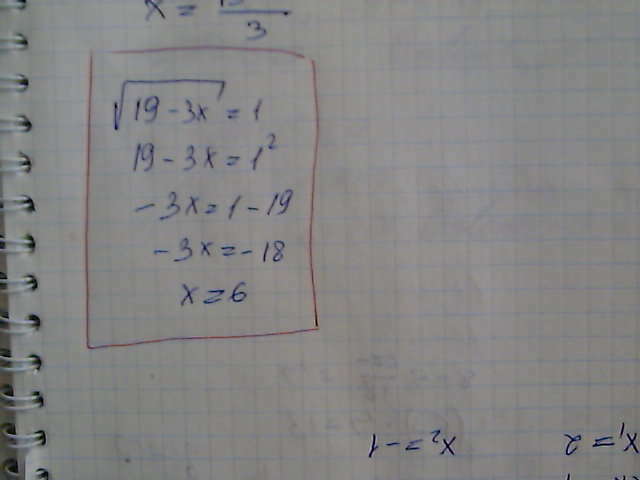 x = 3
√(19 - 3x) = 1
19 - 3x = 1²
-3x = 1 - 19
-3x = -18
x = 6
x₁ = 2
x₂ = -1